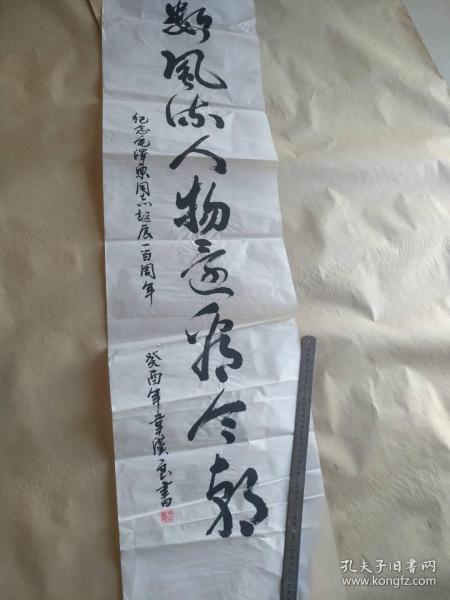 数风流人物还看今朝
纪念毛泽东同志诞辰一百周年
癸酉年叶汉
书
孔夫子旧书网
www.kongfz.com